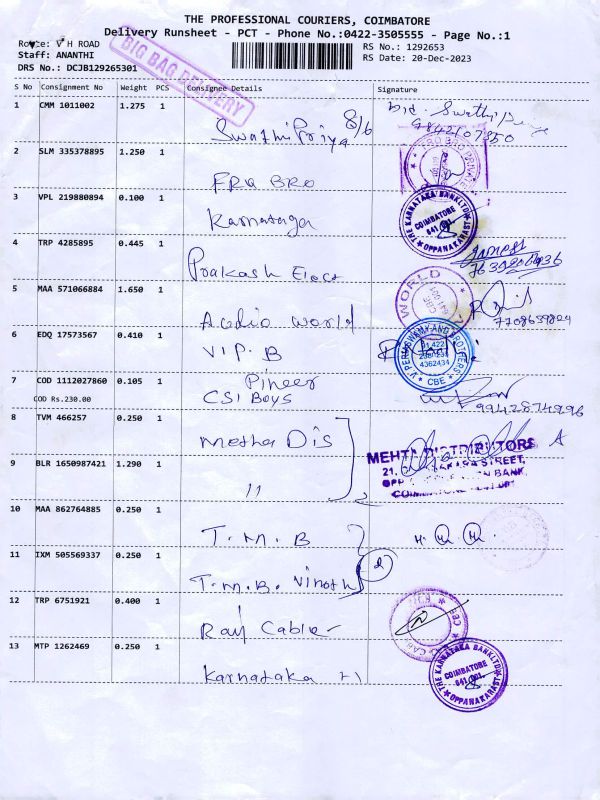 THE PROFESSIONAL COURIERS, COIMBATORE
Delivery Runsheet - PCT - Phone No.:0422-3505555 - Page No.:1
Route: V H ROAD
RS No.: 1292653
Staff: ANANTHI
RS Date: 20-Dec-2023
DRS No.: DCJB129265301
BIG BAG DELIVERY
S No Consignment No Weight PCS Consignee Details Signature
1 CMM 1011002 1.275 1 Swathi Priya 8/6
2 SLM 335378895 1.250 1 ERA BRO
3 VPL 219880894 0.100 1 Karnataga
THE KARNATAKA BANK LTD
COIMBATORE
641 001.
OPPANAKARAST
4 TRP 4285895 0.445 1 Prakash Elect
5 MAA 571066884 1.650 1 Acdio world
WORLD
7708639804
6 EDQ 17573567 0.410 1 V.I.P. B
V.PERUSWAMY AND BROTHERS
4362434
CBE
7 COD 1112027860 0.105 1 Pineer
COD Rs.230.00 CSI Boys
8 TVM 466257 0.250 1 Metha Dis
MEHTA DISTRIBUTORS
9 BLR 1650987421 1.290 1 11
10 MAA 862764885 0.250 1 T.M.B
11 IXM 505569337 0.250 1 T.M.B. Vinoth
12 TRP 6751921 0.400 1 Raj Cable
13 MTP 1262469 0.250 1 Karnataka
THE KARNATAKA BANK LTD
COIMBATORE
641 001.
OPPANAKARAST